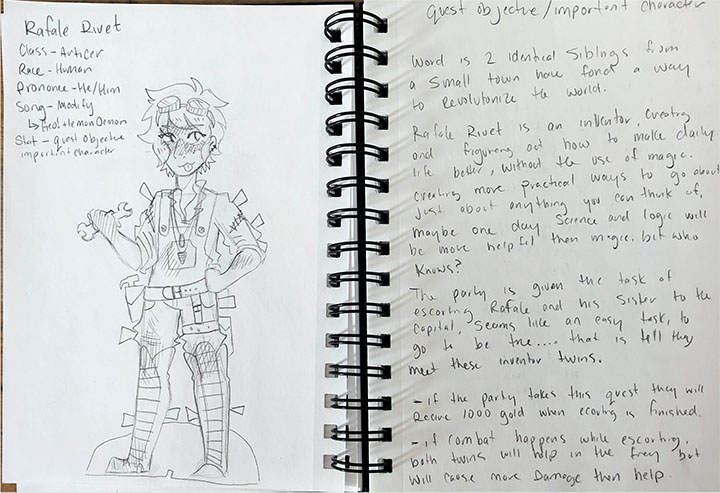 Rafale Rivet
Class - Articer
Race - Human
Pronouns - He/Him
Song - Modify
Slot - quest objective
important character
quest objective/important character
Word is 2 identical Siblings from
a Small town have fond a way
to Revolutonize the world.
Rafale Rivet is an inventor, creating
and figureing out how to make daily
life better, without the use of magic.
Creating more practical ways to go about
Just about anything you can think of,
maybe one day Science and logic will
be more helpful then magic, but who
Knows?
The party is given the task of
escorting Rafale and his Sister to the
Capital, Seams like an easy task, to
go to be true.... that is tell they
meet these inventor twins.
- if the party takes this quest they will
Recive 1000 gold when ecorting is finished.
- if combat happens while escorting,
both twins will help in the frey but
will cause more Damage then help.